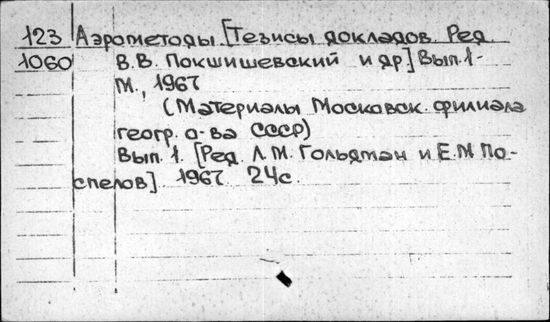 123 Аэрометоды [Тезисы докладов. Ред.
1060 В.В. Покшишевский и др] Вып. 1-
М., 1967
(Материалы Московск. филиала
геогр. о-ва СССР)
Вып. 1. [Ред. Л.М. Гольдман и Е.М По-
спелов] 1967 24с.